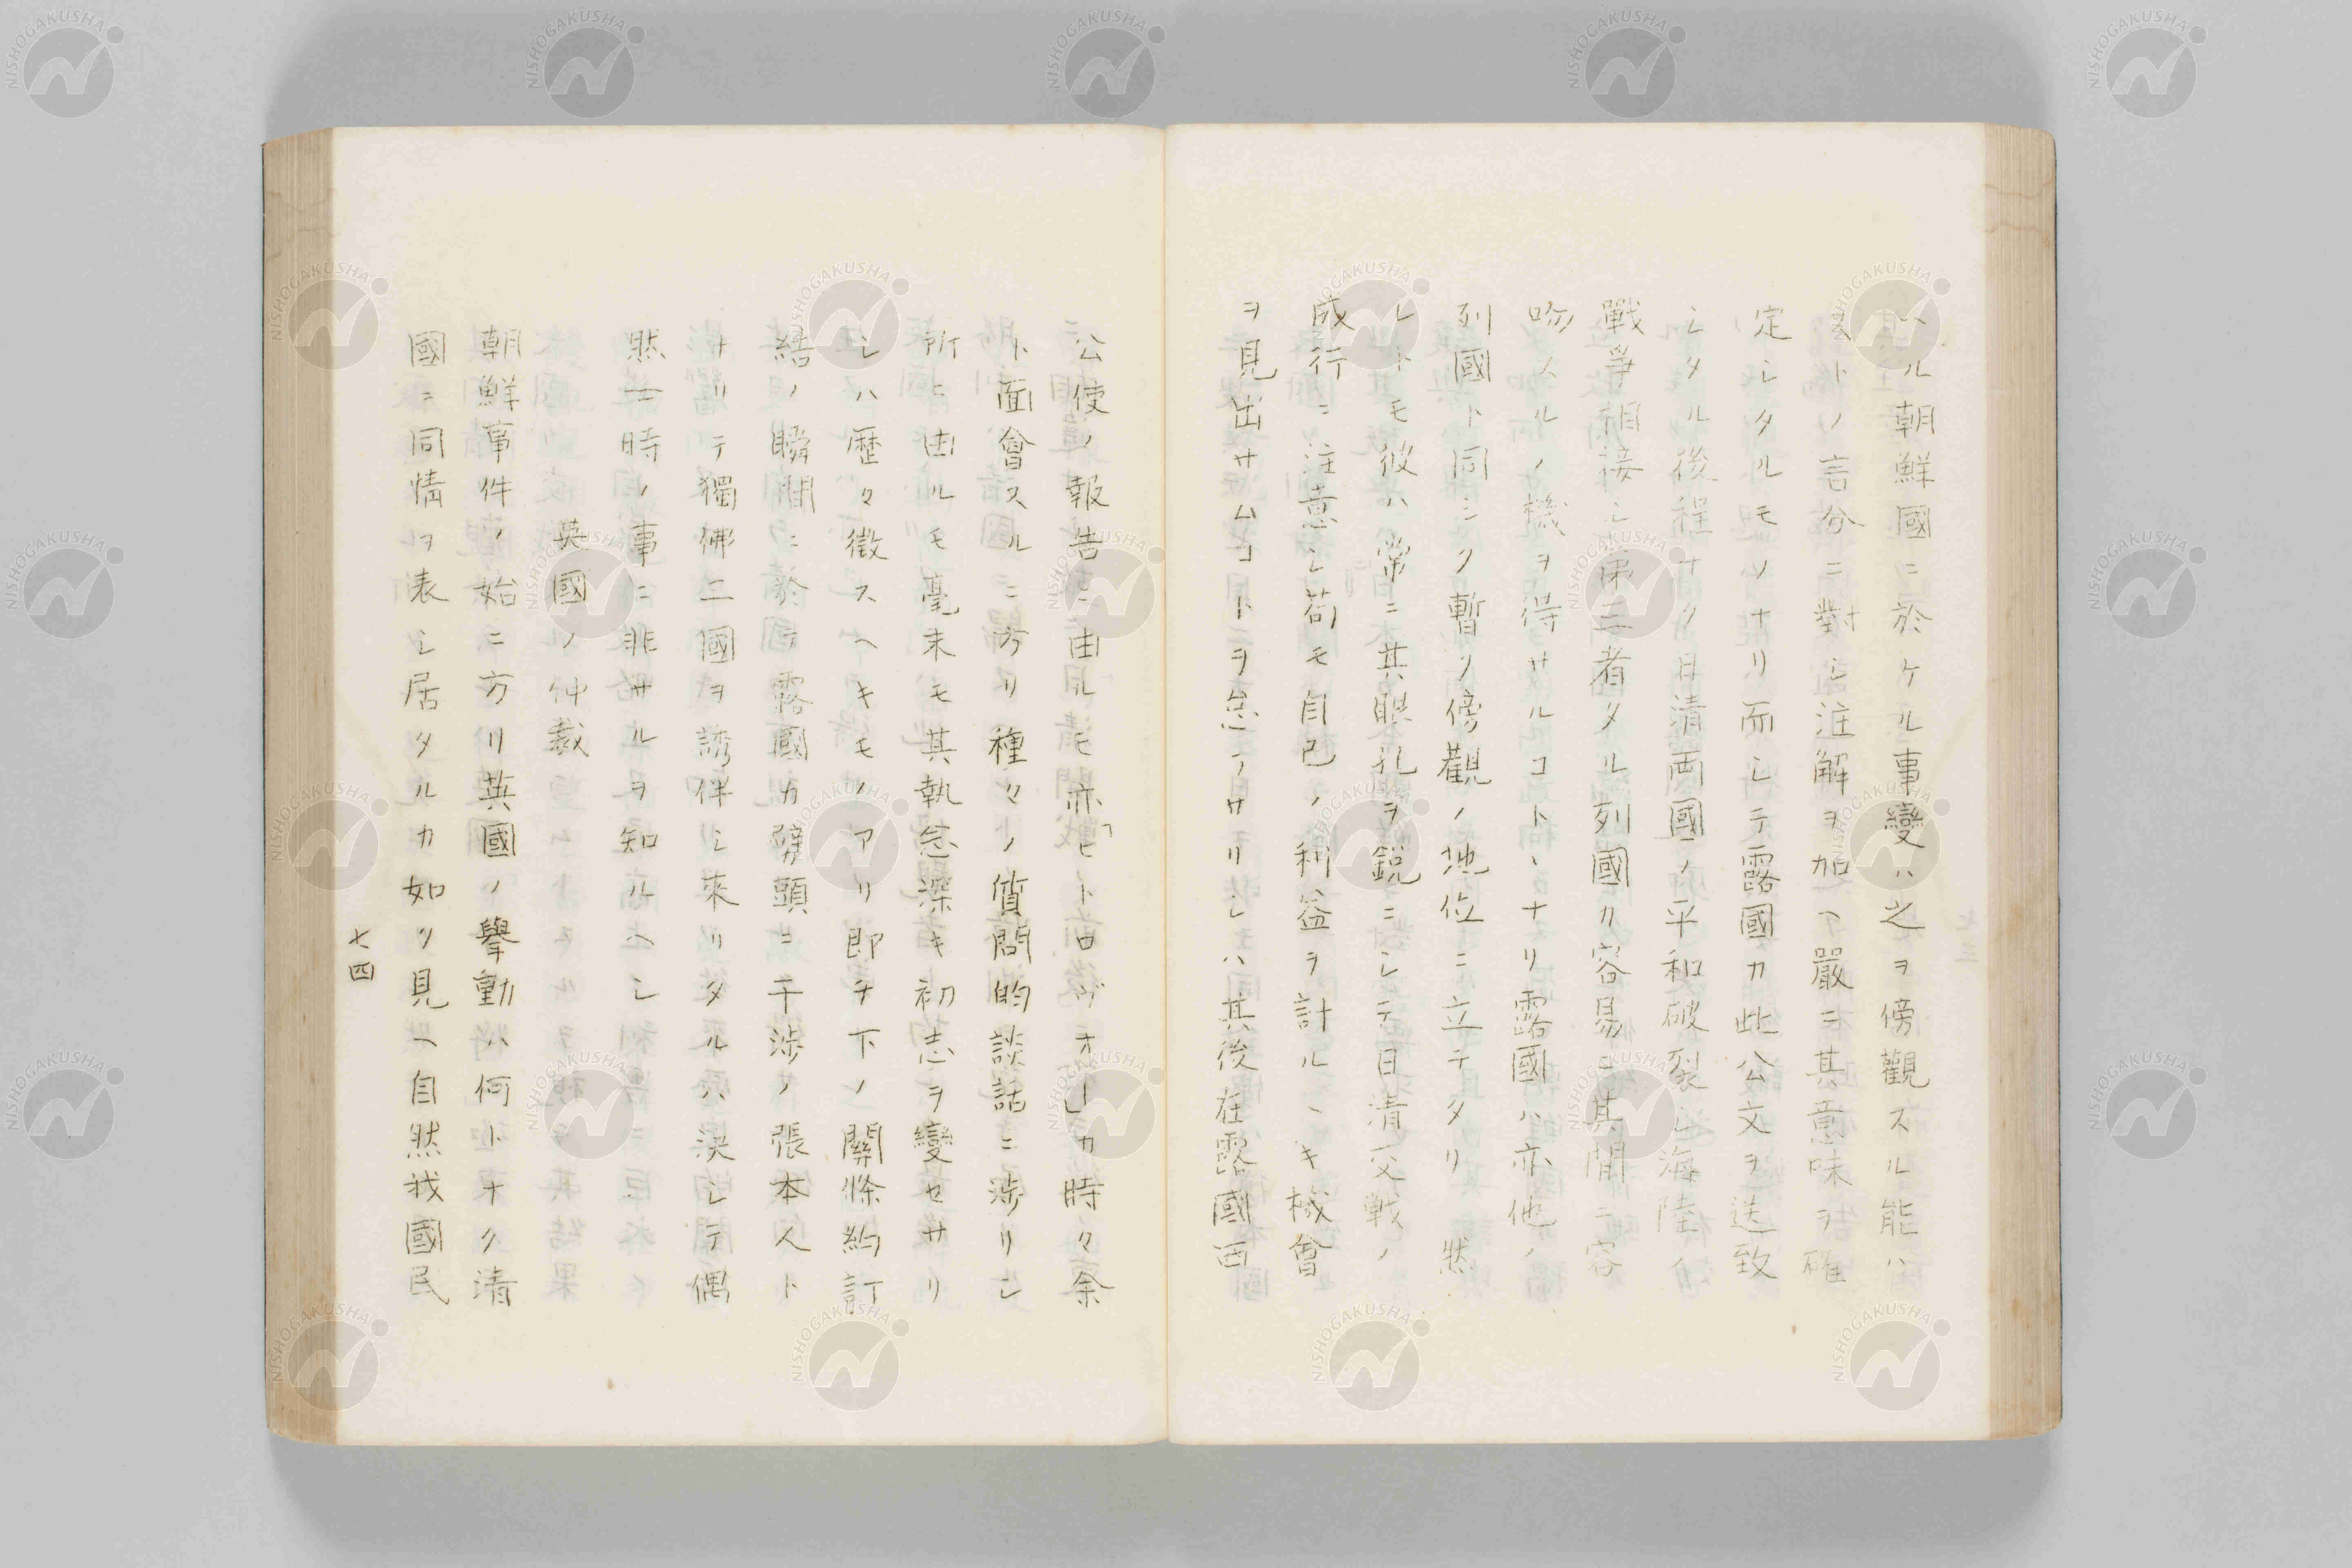 ヘル朝鮮國ニ於ケル事變ハ之ヲ傍觀スル能ハ
云トノ言分ニ對シ注解ヲ加ヘ嚴ニ其意味ヲ確
定シタルモノナリ而シテ露國カ此公文ヲ送致
シタル後程ナク日清両國ノ平和破裂シ海陸ノ
戰爭相接シ第三者タル列國カ容易ニ其間ニ容
吻スルノ機ヲ得サルコトヽナリ露國ハ亦他ノ
列國ト同シク暫ク傍觀ノ地位ニ立テタリ然
レトモ彼ハ常ニ其眼孔ヲ鋭ニシテ日清交戦ノ
成行ニ注意シ苟モ自己ノ利益ヲ計ルヘキ機會
ヲ見出サムコトヲ怠ラサリシハ其後在露國西
公使ノ報告ニ由ルモ亦「ヒトロヴオー」カ時々余
ト面會スルニ方リ種々ノ質問的談話ニ渉リシ
所ニ由ルモ毫末モ其執念深キ初志ヲ變セサリ
シハ歴々徴スヘキモノアリ即チ下ノ關條約訂
結ノ瞬間ニ於テ露國カ劈頭ニ干渉ノ張本人ト
ナリテ獨佛二國ヲ誘伴シ來リタルハ決シテ偶
然一時ノ事ニ非サルヲ知ルヘシ
英國ノ仲裁
朝鮮事件ノ始ニ方リ英國ノ擧動ハ何トナク清
國ニ同情ヲ表シ居タルカ如ク見ヘ自然我國民
七四